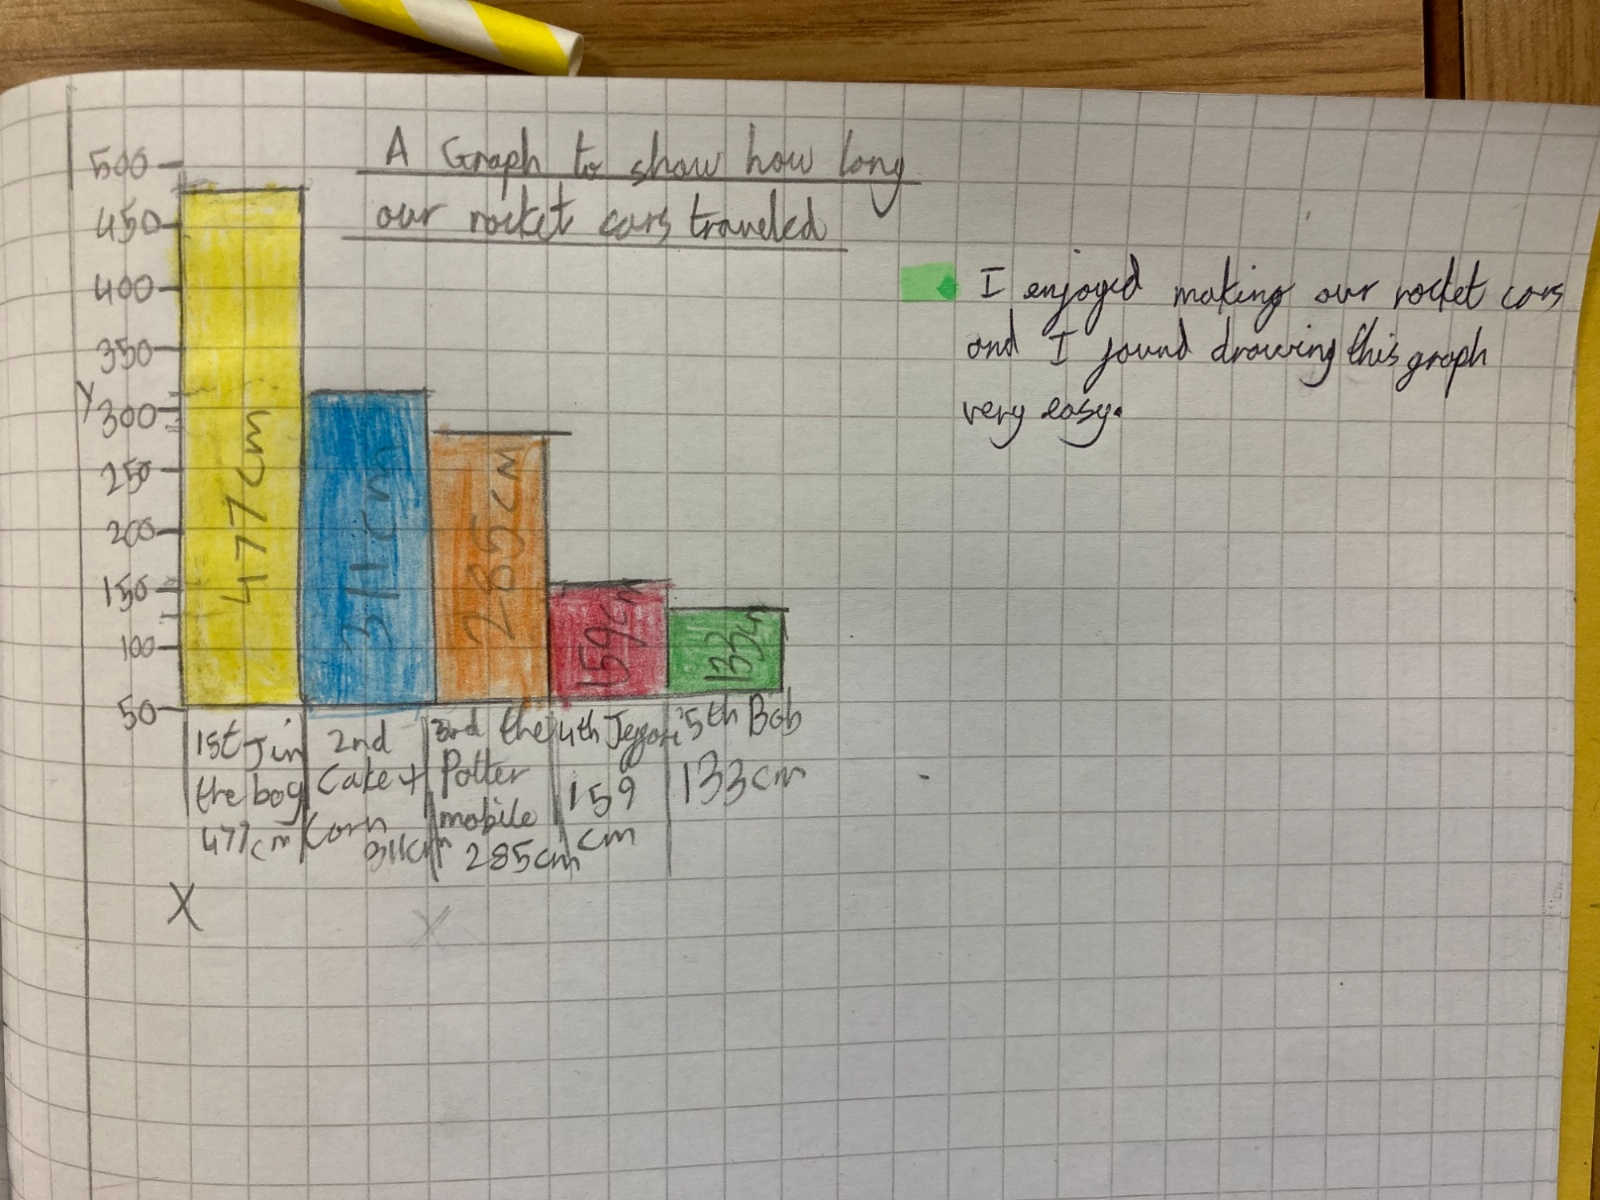 A Graph to show how long
our rocket cars traveled
500
450
400
350
Y
300
250
200
150
100
50
477cm
311cm
285cm
159cm
133cm
1st Jin
the bog
477cm
2nd
Cake +
Corn
311cm
3rd the
Potter
mobile
285cm
4th
159
cm
5th Bob
133cm
X
X
I enjoyed making our rocket cars
and I found drawing this graph
very easy.